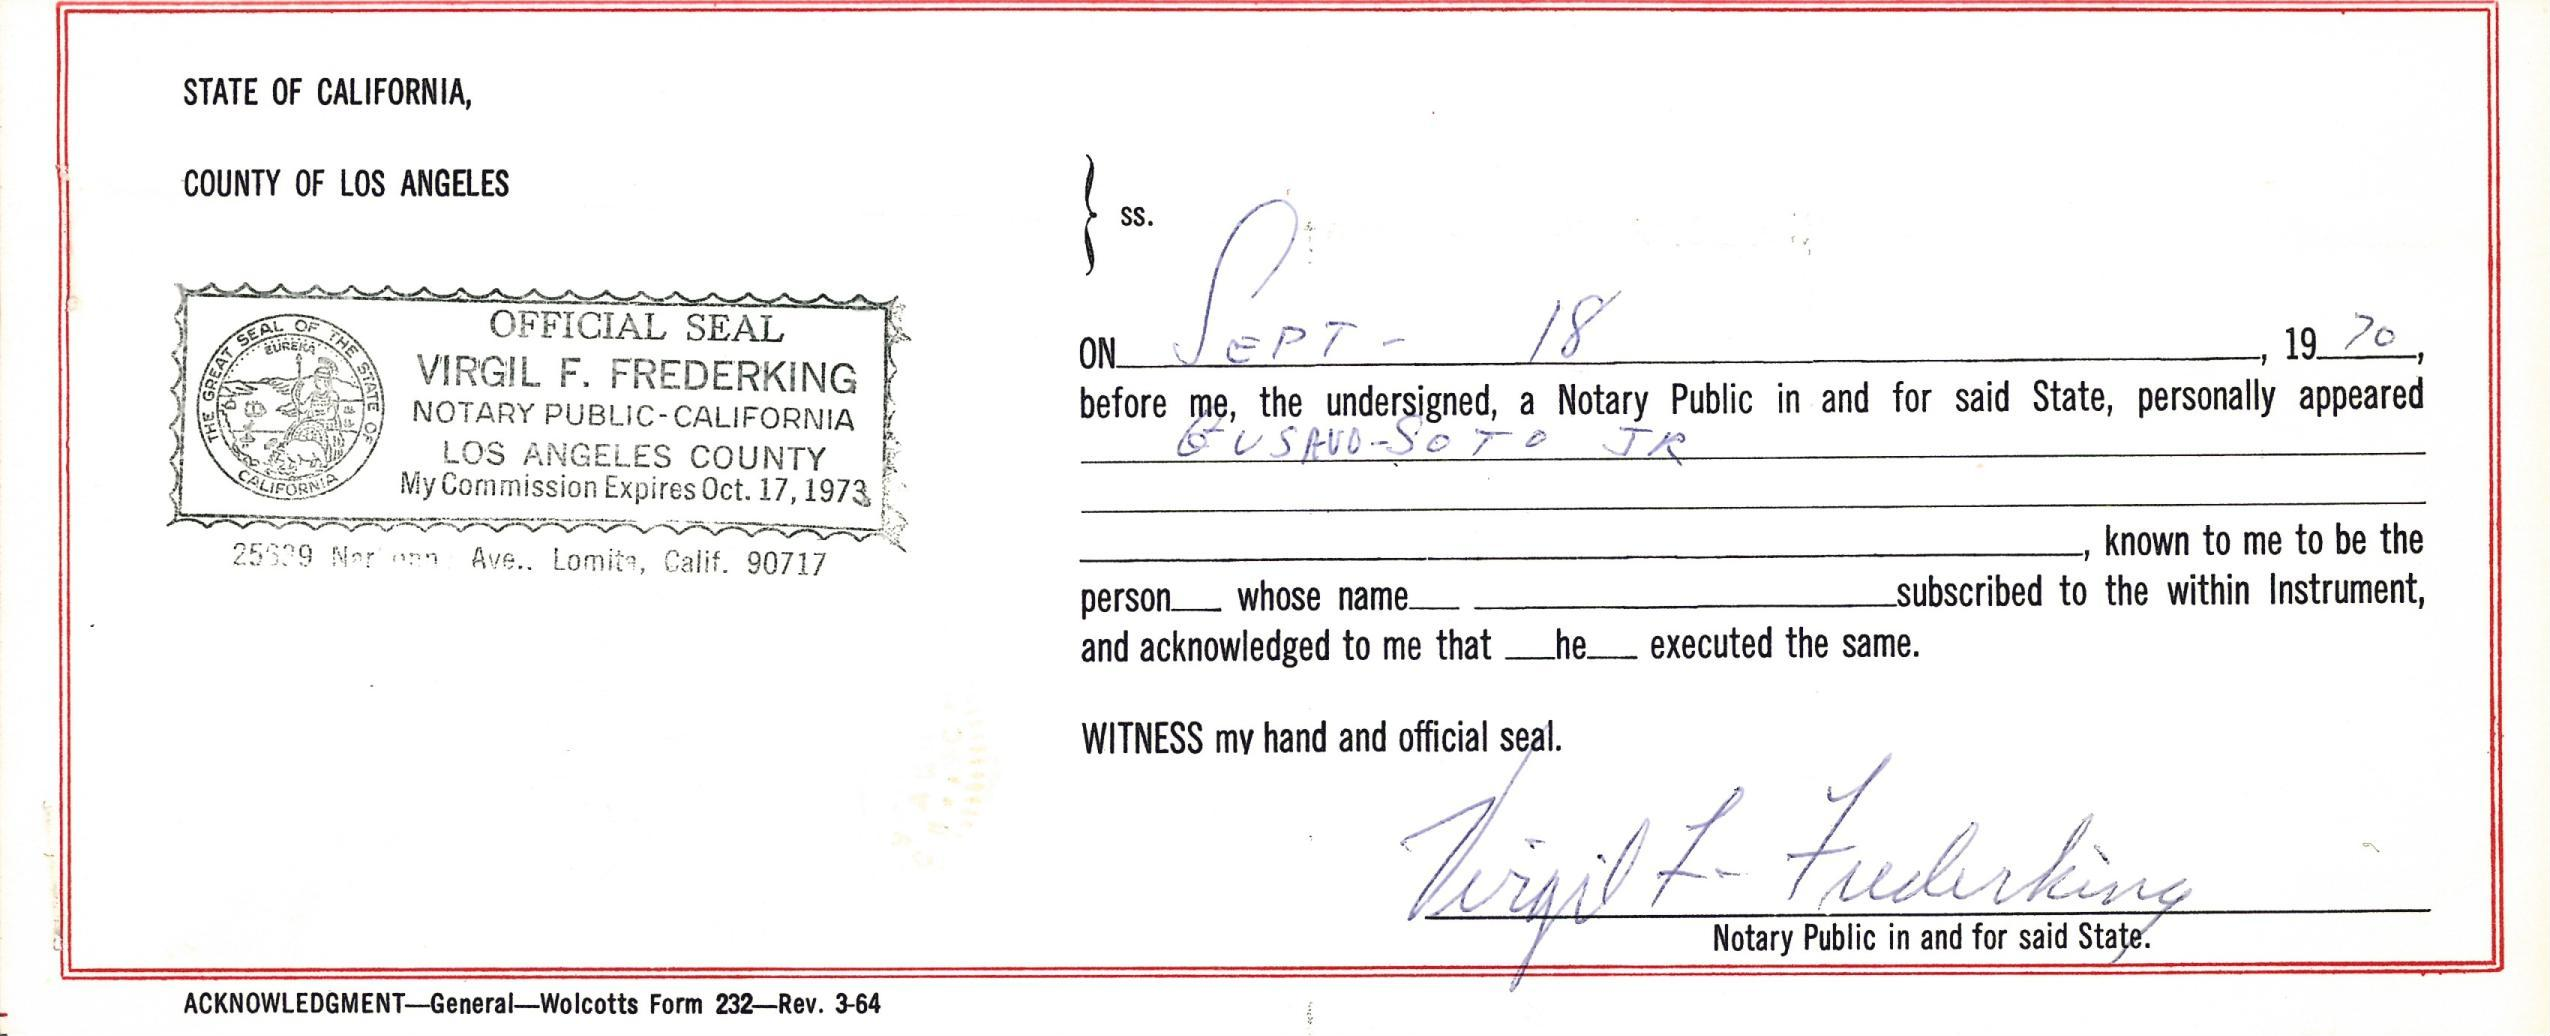 STATE OF CALIFORNIA,
COUNTY OF LOS ANGELES
} ss.
THE GREAT SEAL OF THE STATE OF CALIFORNIA
EUREKA
OFFICIAL SEAL
VIRGIL F. FREDERKING
NOTARY PUBLIC-CALIFORNIA
LOS ANGELES COUNTY
My Commission Expires Oct. 17, 1973
Ave., Lomita, Calif. 90717
ON SEPT - 18, 19 70,
before me, the undersigned, a Notary Public in and for said State, personally appeared
GUSAVO-SOTO JR
, known to me to be the
person__ whose name__ ____ subscribed to the within Instrument,
and acknowledged to me that __he__ executed the same.
WITNESS my hand and official seal.
Virgil F- Frederking
Notary Public in and for said State.
ACKNOWLEDGMENT—General—Wolcotts Form 232—Rev. 3-64